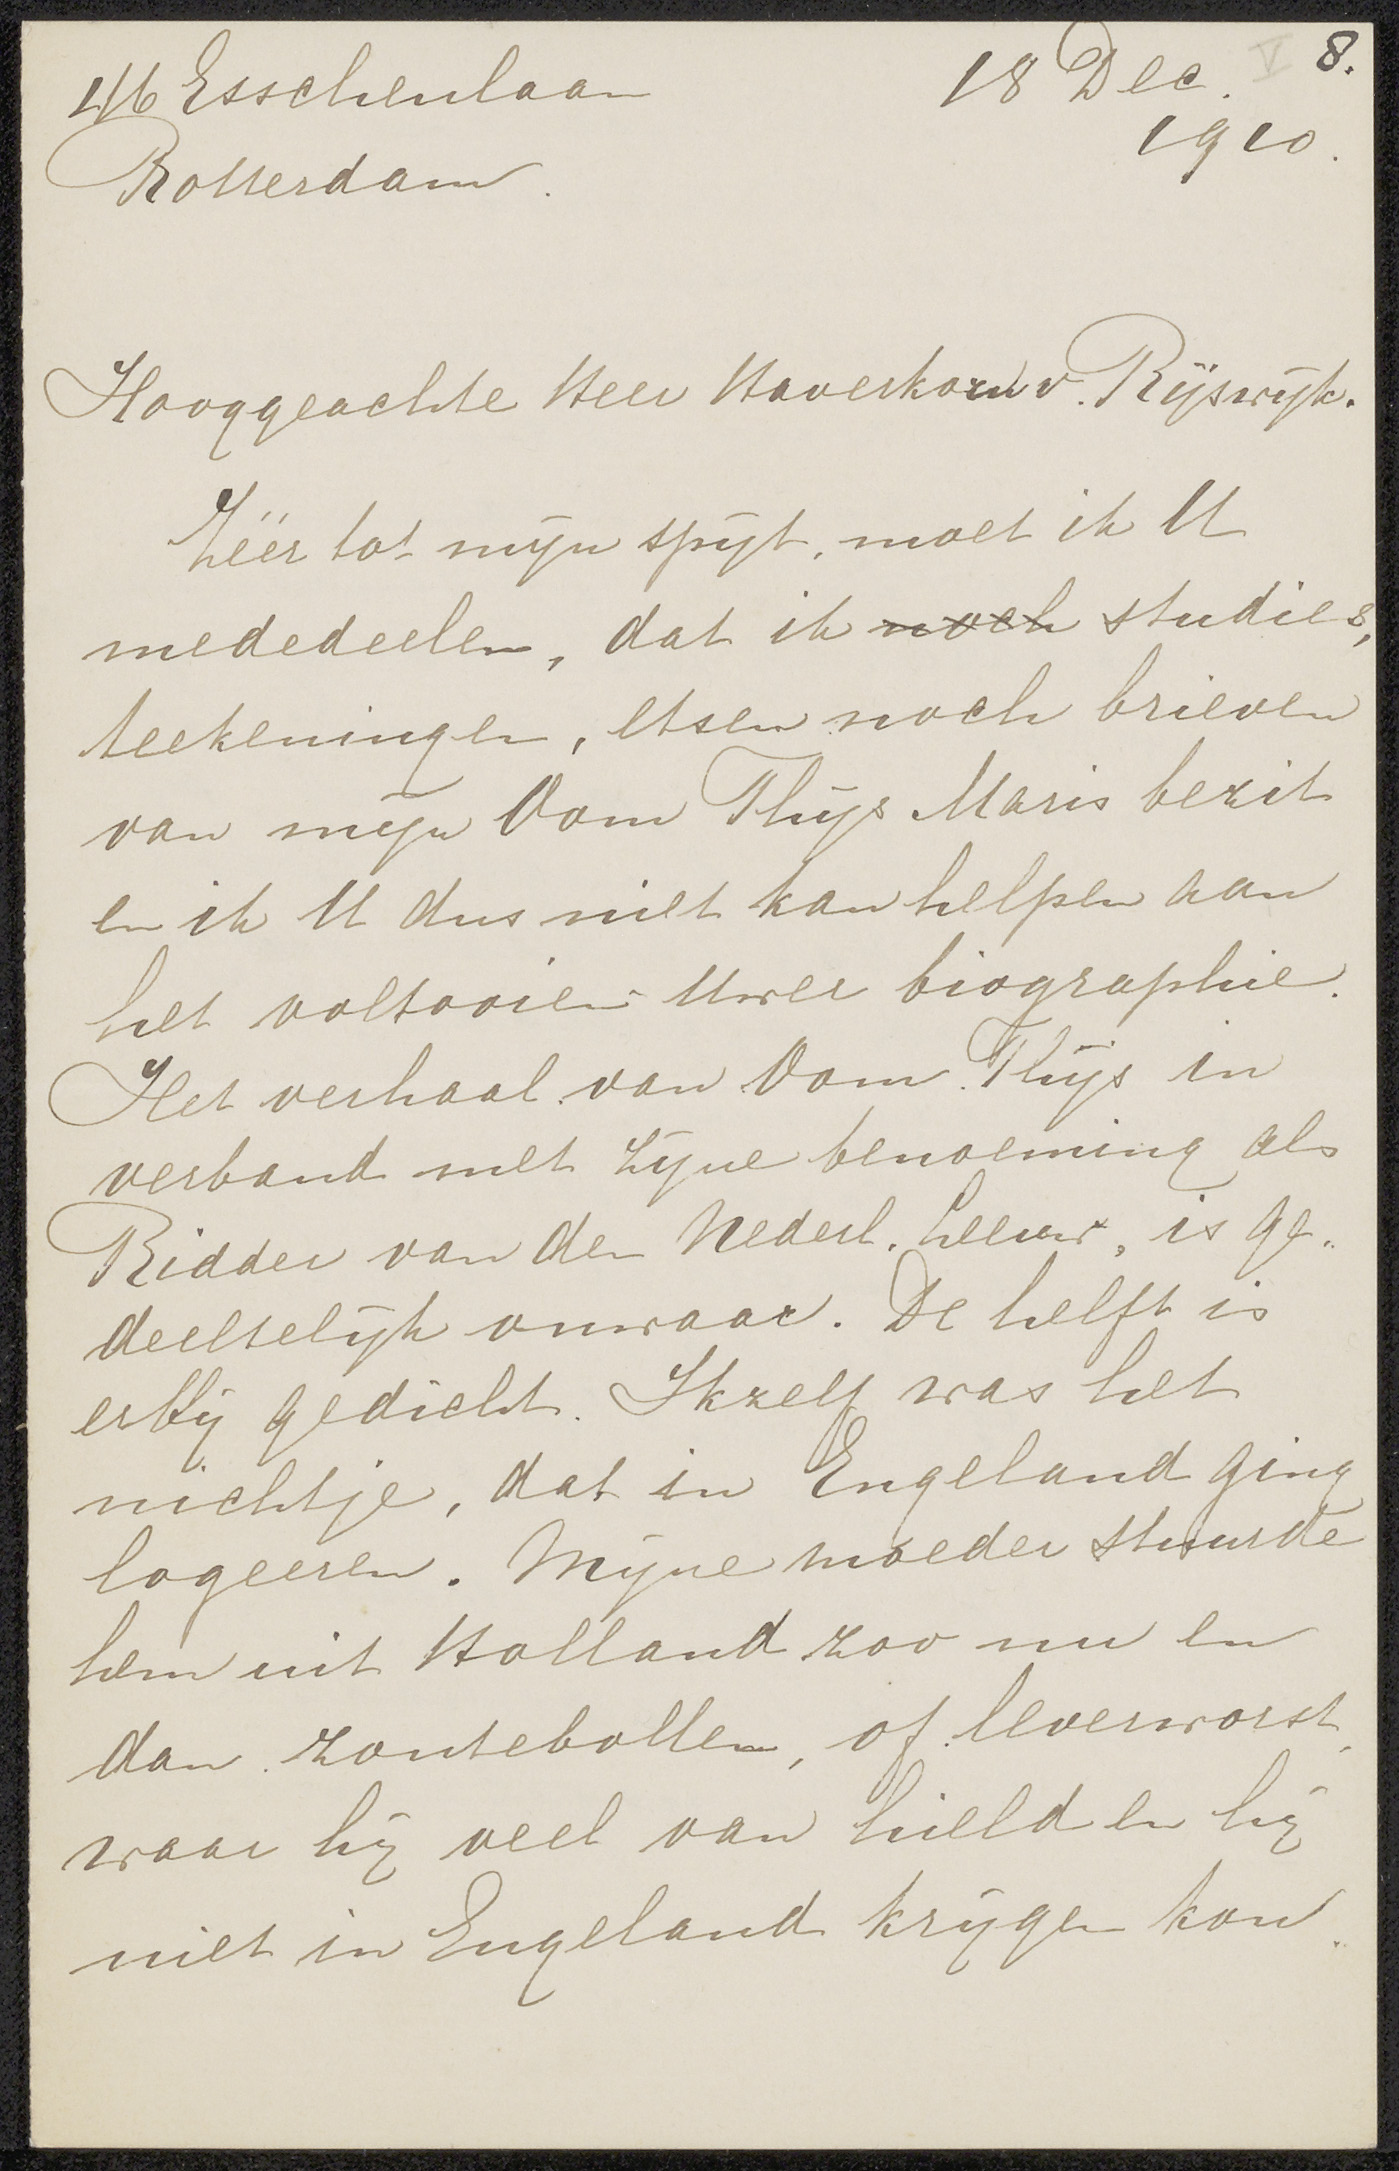 46 Esschenlaan 18 Dec. V 8.
Rotterdam. 1910.
Hooggeachte Heer Haverkorn v. Rijswijk.
Zéér tot mijn spijt, moet ik U
mededeelen, dat ik noch studies,
teekeningen, etsen noch brieven
van mijn Oom Thijs Maris bezit
en ik U dus niet kan helpen aan
het voltooien Uwer biographie.
Het verhaal van Oom Thijs in
verband met zijne benoeming als
Ridder van den Nederl. Leeuw, is ge„
deeltelijk onwaar. De helft is
erbij gedicht. Ikzelf was het
nichtje, dat in Engeland ging
logeeren. Mijne moeder stuurde
hem uit Holland zoo nu en
dan zoutebollen, of leverworst,
waar hij veel van hield en hij
niet in Engeland krijgen kon.